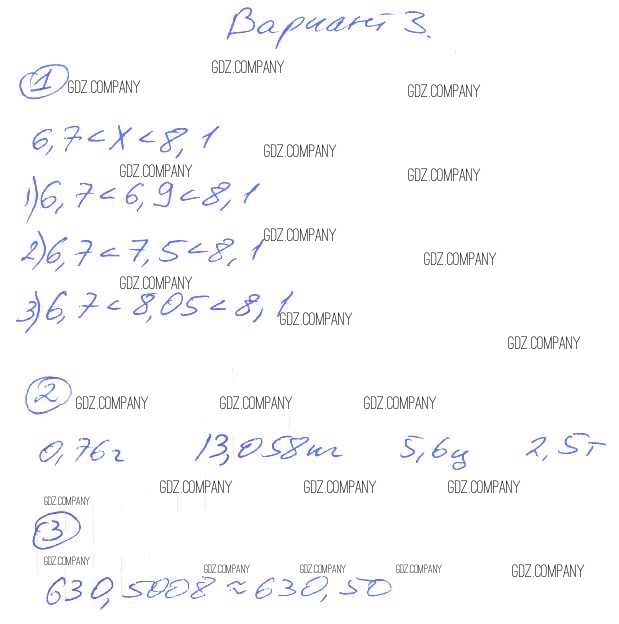 Вариант 3.
GDZ.COMPANY
1 GDZ.COMPANY GDZ.COMPANY
6,7 < x < 8,1 GDZ.COMPANY
GDZ.COMPANY GDZ.COMPANY
1) 6,7 < 6,9 < 8,1
GDZ.COMPANY
2) 6,7 < 7,5 < 8,1 GDZ.COMPANY
GDZ.COMPANY
3) 6,7 < 8,05 < 8,1 GDZ.COMPANY
GDZ.COMPANY
2 GDZ.COMPANY GDZ.COMPANY GDZ.COMPANY
0,76г 13,058кг 5,6ц 2,5т
GDZ.COMPANY GDZ.COMPANY GDZ.COMPANY
GDZ.COMPANY
3
GDZ.COMPANY GDZ.COMPANY GDZ.COMPANY GDZ.COMPANY GDZ.COMPANY
630,5008 ≈ 630,50